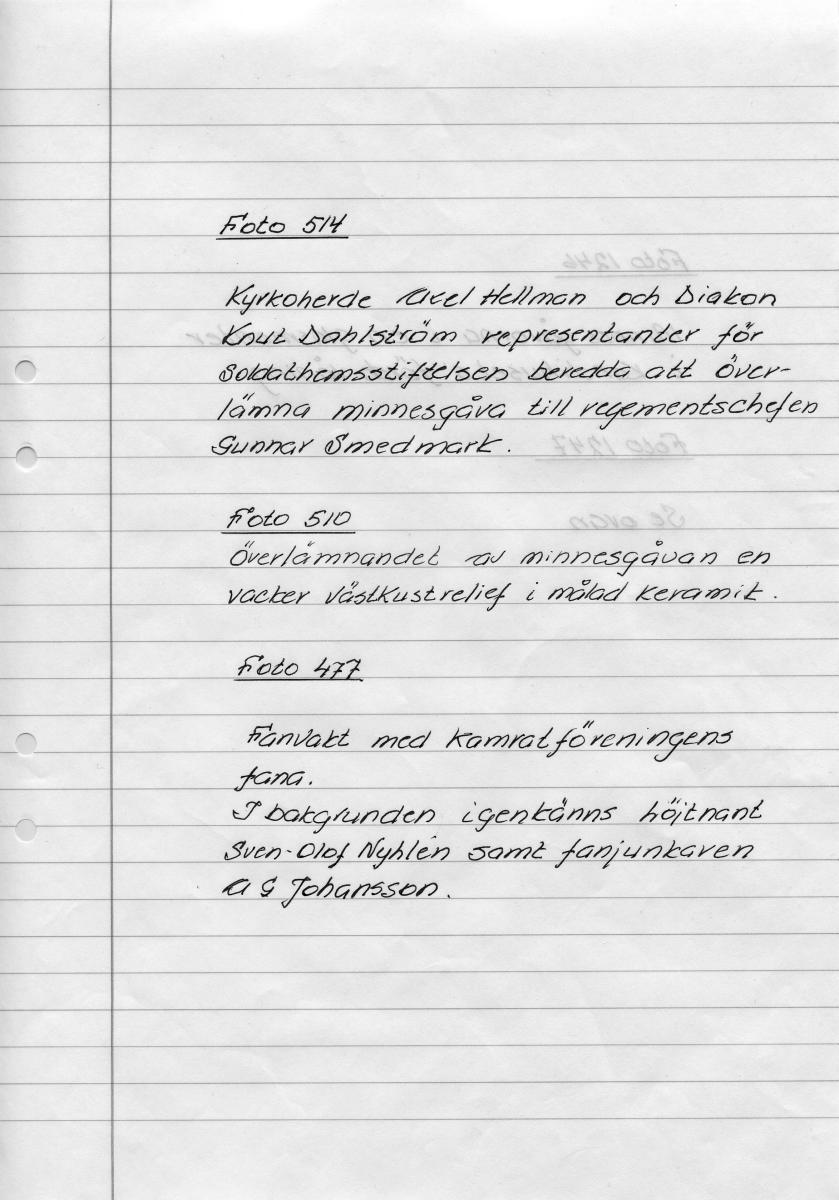 Foto 514
Kyrkoherde Axel Hellman och Diakon
Knut Dahlström representanter för
Soldathemsstiftelsen beredda att över-
lämna minnesgåva till regementschefen
Gunnar Smedmark.
Foto 510
Överlämnandet av minnesgåvan en
vacker västkustrelief i målad keramik.
Foto 477
Fanvakt med kamratföreningens
fana.
I bakgrunden igenkänns höjtnant
Sven-Olof Nyhlén samt fanjunkaren
A G Johansson.
Foto 1246
Foto 1247
Se ovan